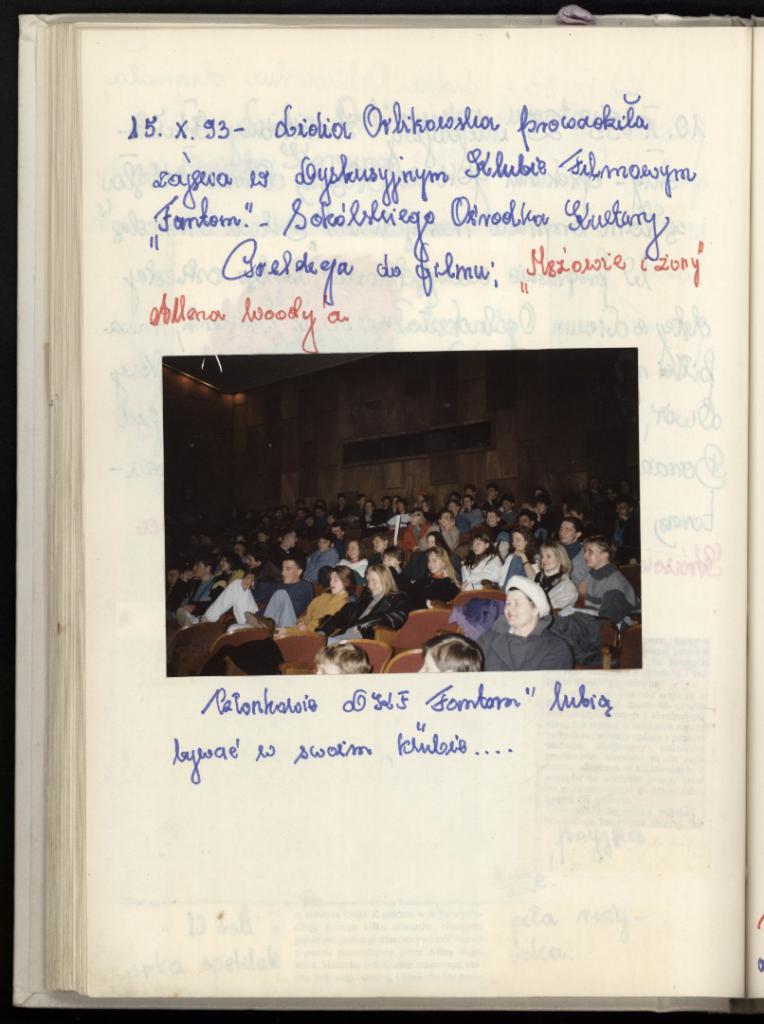 15. X. 93 - Lidia Orlikowska prowadziła
zajęcia w Dyskusyjnym Klubie Filmowym
"Fantom" - Sokólskiego Ośrodka Kultury
Prelekcja do filmu: "Mężowie i żony"
Allena Woody'a.
Członkowie DKF "Fantom" lubią
bywać w swoim klubie....